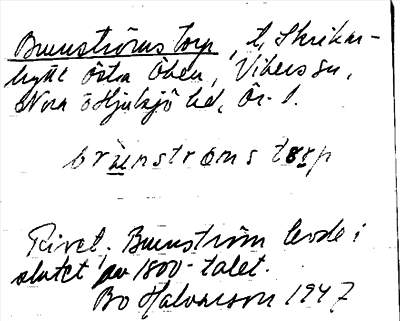 Brunströms torp, t. Skrikar-
hytt Östra Öden, Vikers sn,
Nora o Hjulsjö hd, Ör. l.
brunstroms torp
Rivet. Brunström levde i
slutet av 1800-talet.
Bo Halvarson 1947